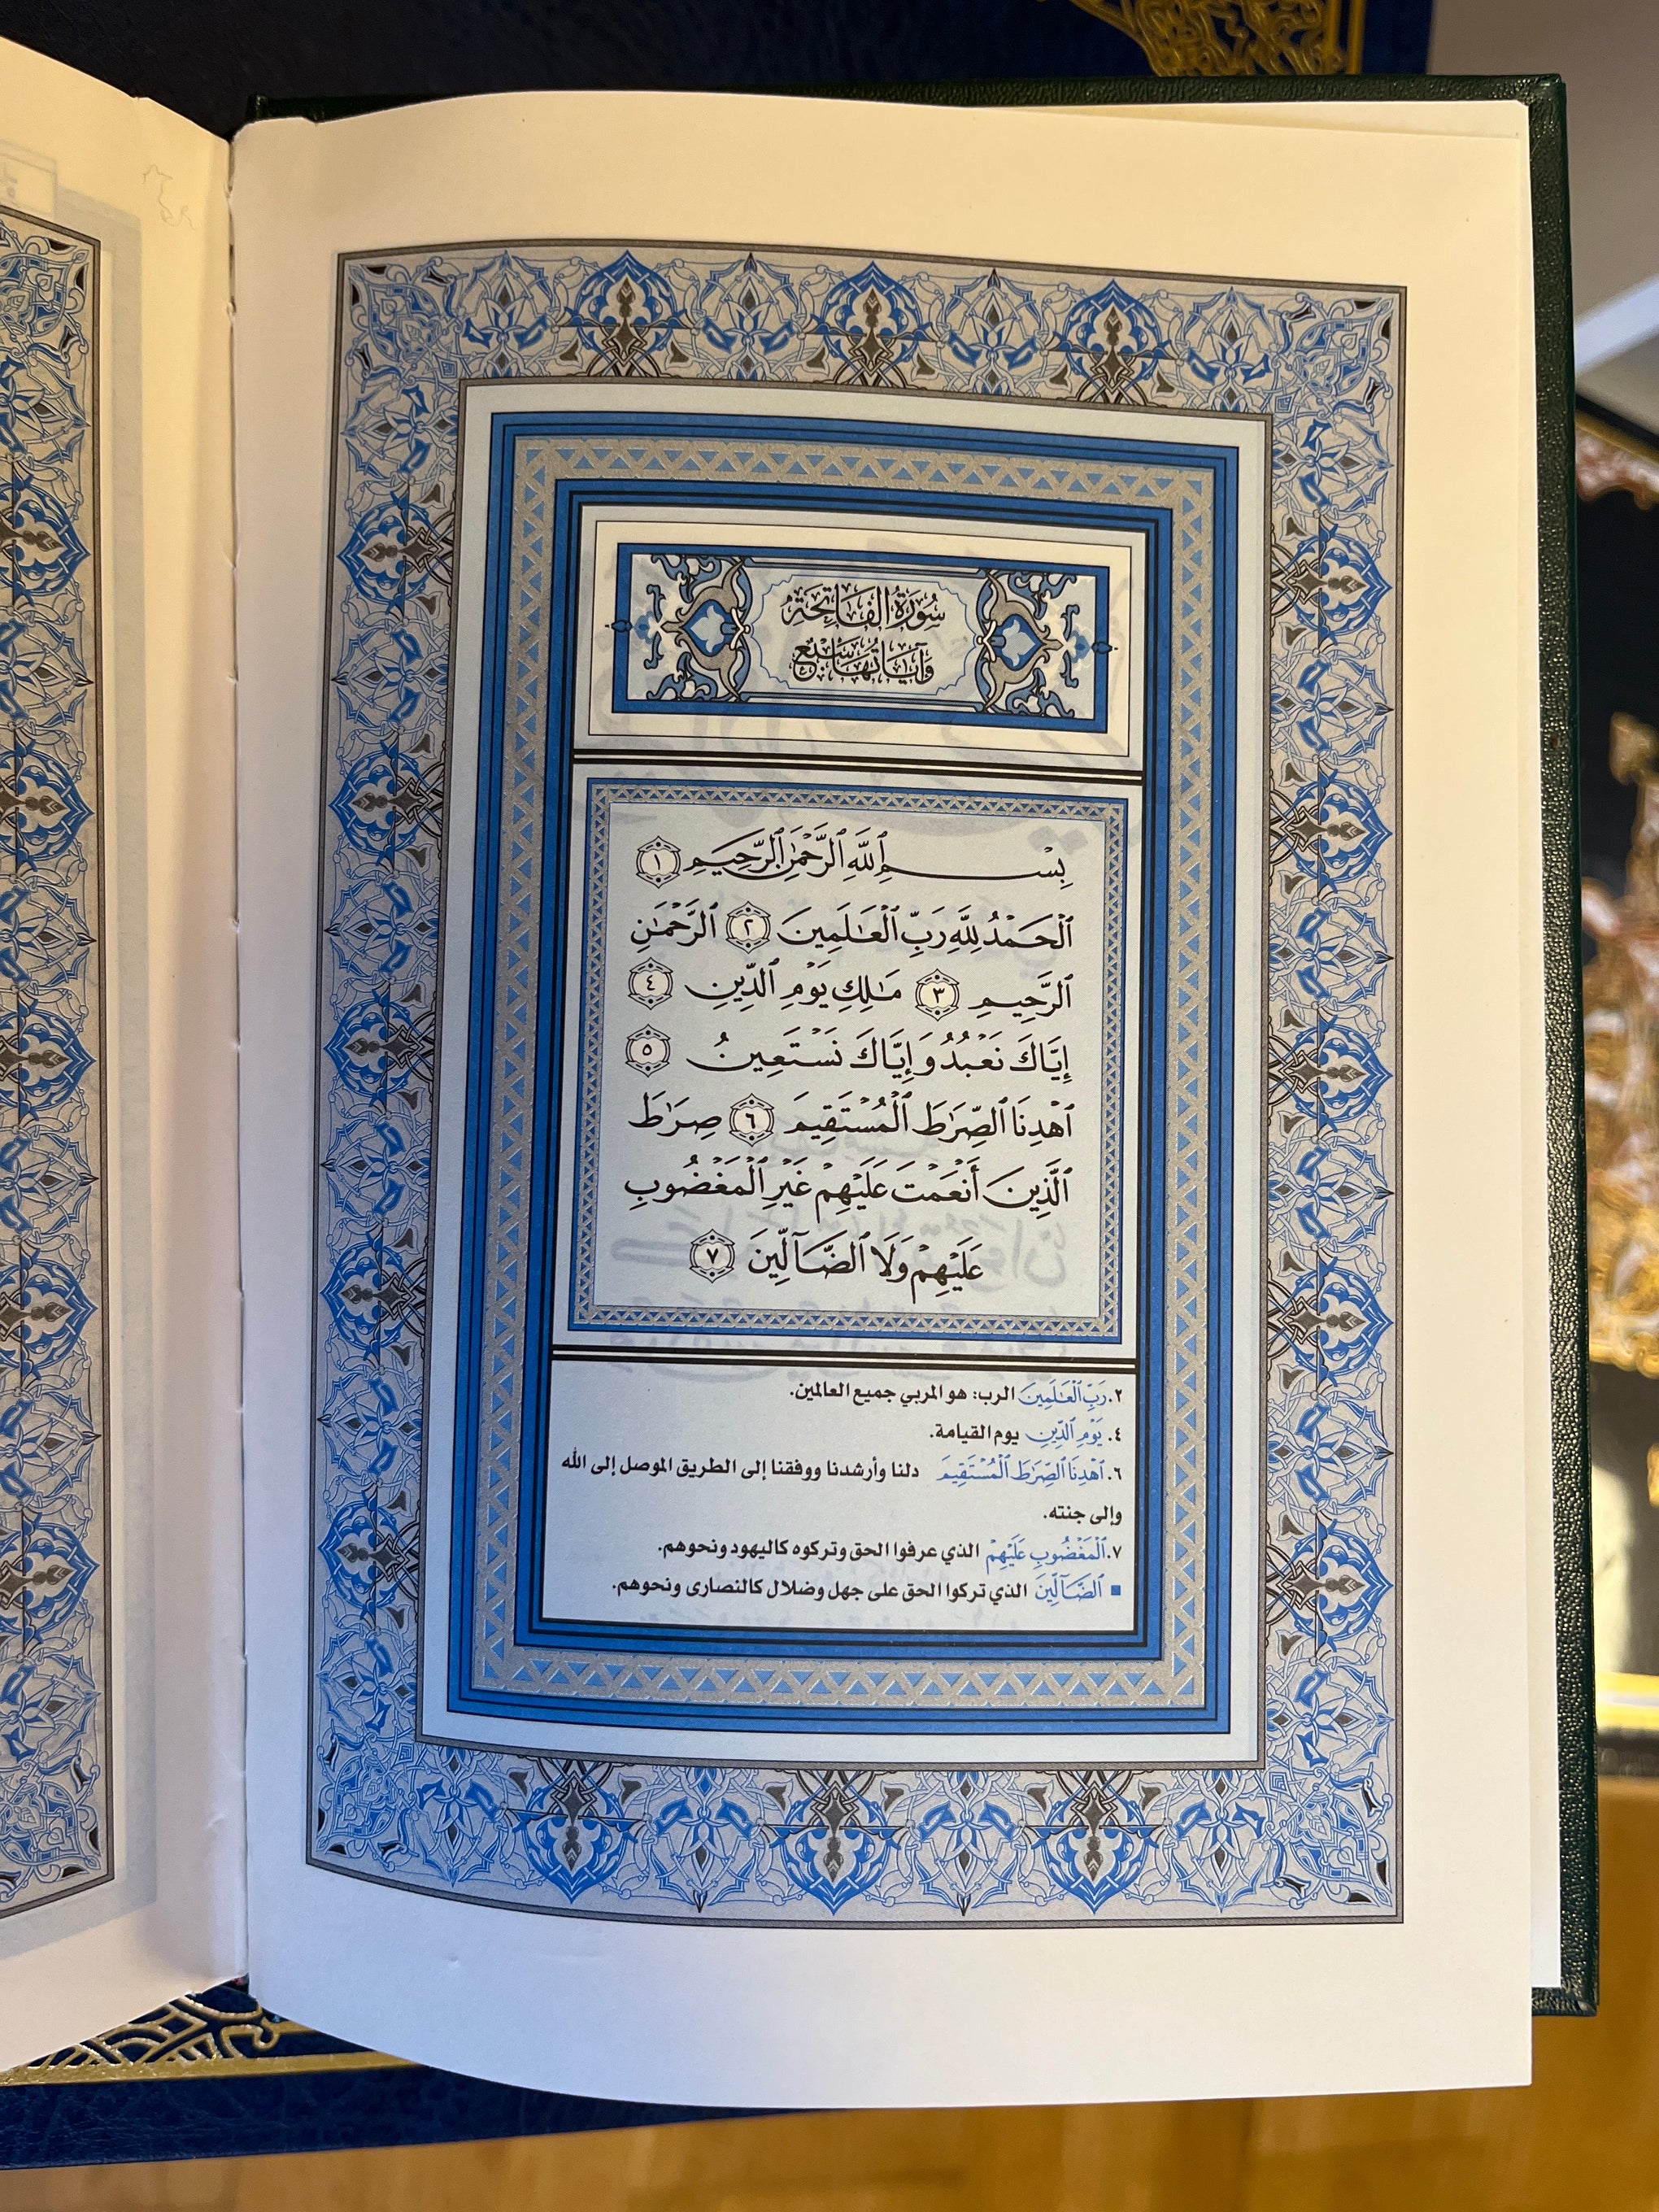 سُورَةُ الفَاتِحَةِ
وَآيَاتُهَا سَبْعٌ
بِسْمِ ٱللَّهِ ٱلرَّحْمَٰنِ ٱلرَّحِيمِ ١
ٱلْحَمْدُ لِلَّهِ رَبِّ ٱلْعَٰلَمِينَ ٢ ٱلرَّحْمَٰنِ
ٱلرَّحِيمِ ٣ مَٰلِكِ يَوْمِ ٱلدِّينِ ٤
إِيَّاكَ نَعْبُدُ وَإِيَّاكَ نَسْتَعِينُ ٥
ٱهْدِنَا ٱلصِّرَٰطَ ٱلْمُسْتَقِيمَ ٦ صِرَٰطَ
ٱلَّذِينَ أَنْعَمْتَ عَلَيْهِمْ غَيْرِ ٱلْمَغْضُوبِ
عَلَيْهِمْ وَلَا ٱلضَّآلِّينَ ٧
٢. رَبِّ ٱلْعَٰلَمِينَ الرب: هو المربي جميع العالمين.
٤. يَوْمِ ٱلدِّينِ يوم القيامة.
٦. ٱهْدِنَا ٱلصِّرَٰطَ ٱلْمُسْتَقِيمَ دلنا وأرشدنا ووفقنا إلى الطريق الموصل إلى الله
وإلى جنته.
٧. ٱلْمَغْضُوبِ عَلَيْهِمْ الذي عرفوا الحق وتركوه كاليهود ونحوهم.
■ ٱلضَّآلِّينَ الذي تركوا الحق على جهل وضلال كالنصارى ونحوهم.